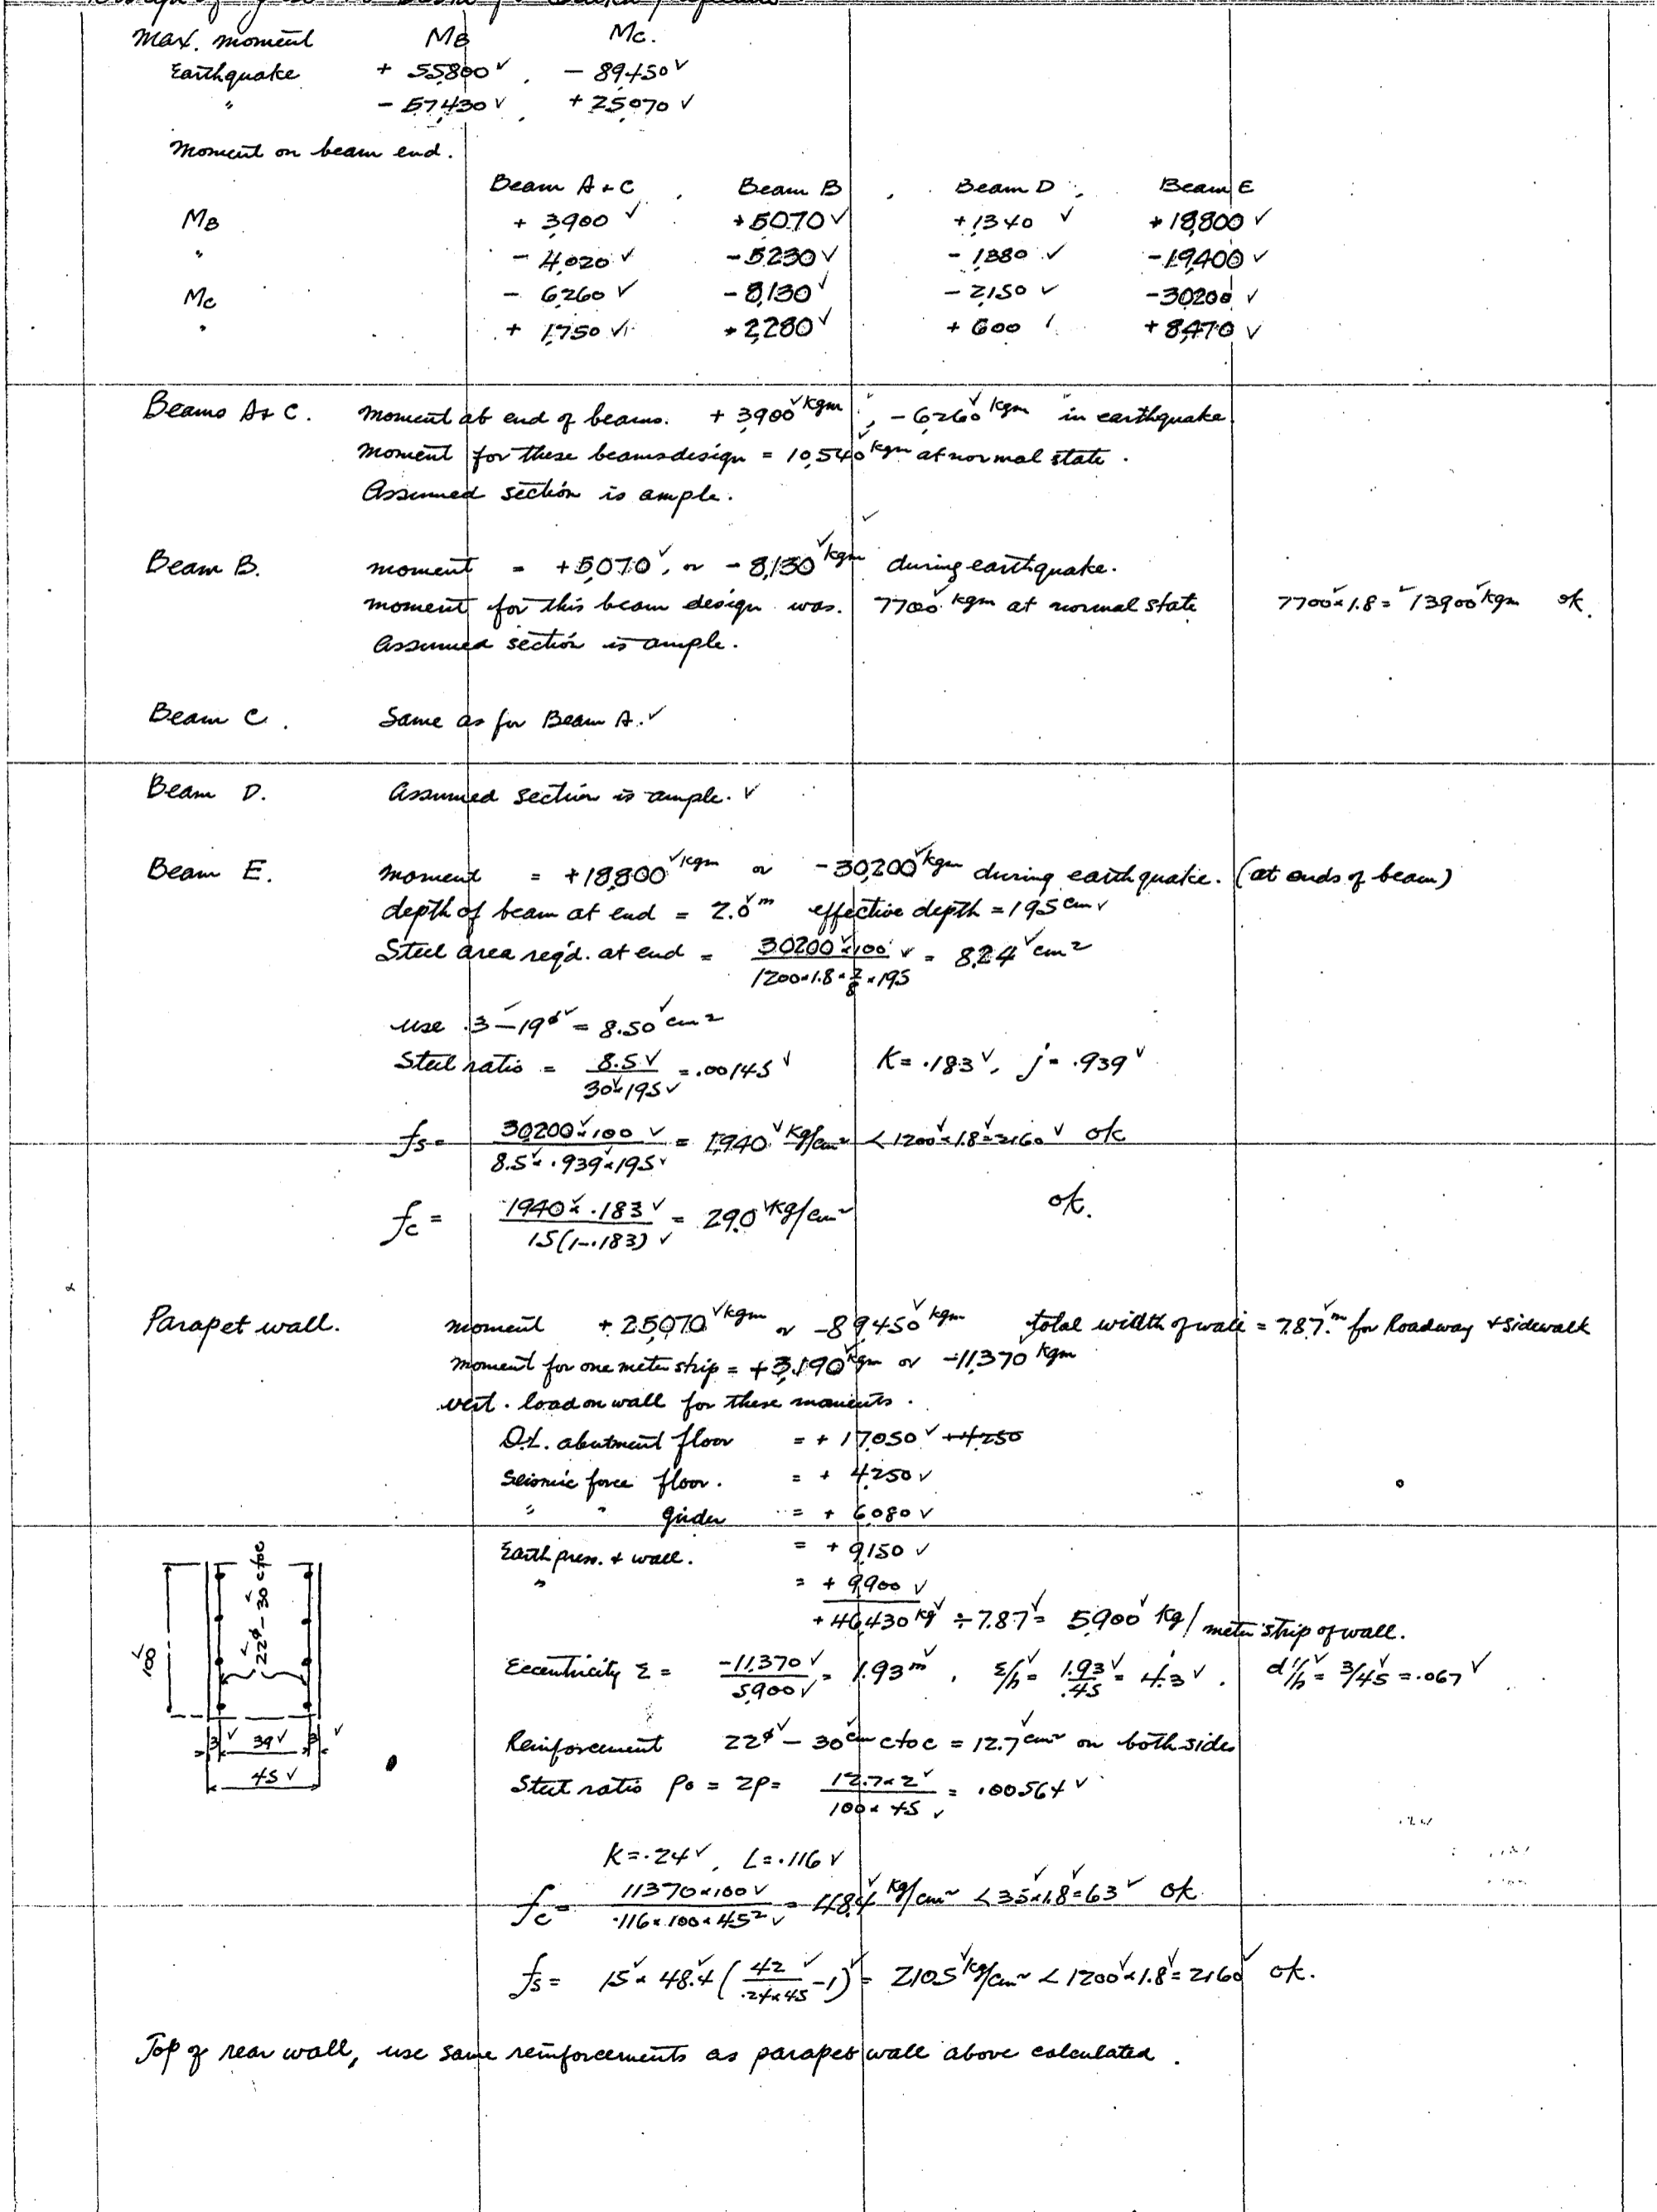 Max. moment MB Mc.
Earthquake + 55800 ✓, - 89450 ✓
" - 57430 ✓, + 25070 ✓
Moment on beam end.
Beam A + C, Beam B, Beam D, Beam E
MB + 3,900 ✓ + 5070 ✓ + 1340 ✓ + 18,800 ✓
" - 4,020 ✓ - 5230 ✓ - 1,380 ✓ - 19,400 ✓
Mc - 6,260 ✓ - 8,130 ✓ - 2,150 ✓ - 30200 ✓
" + 1,750 ✓ + 2,280 ✓ + 600 ✓ + 8,470 ✓
Beams A + C. Moment at end of beams. + 3,900 ✓ kgm, - 6,260 ✓ kgm in earthquake
Moment for these beams design = 10,540 ✓ kgm at normal state.
Assumed section is ample.
Beam B. moment = + 5,070 ✓, or - 8,130 ✓ kgm during earthquake.
moment for this beam design was. 7700 ✓ kgm at normal state 7700 ✓ x 1.8 = ✓ 13900 ✓ kgm ok.
Assumed section is ample.
Beam C. Same as for Beam A. ✓
Beam D. Assumed section is ample. ✓
Beam E. moment = + 18,800 ✓ kgm or - 30,200 ✓ kgm during earthquake. (at ends of beam)
depth of beam at end = 2.0 ✓ m effective depth = 195 cm ✓
Steel area req'd. at end = 30200 ✓ x 100 ✓ / 1200 x 1.8 x 7/8 x 195 = 8.24 ✓ cm2
use 3 ✓ - 19ø ✓ = 8.50 ✓ cm2
Steel ratio = 8.5 ✓ / 30 ✓ x 195 ✓ = .00145 ✓ K = .183 ✓, j = .939 ✓
fs = 30200 ✓ x 100 ✓ / 8.5 ✓ x .939 ✓ x 195 ✓ = 1,940 ✓ kg/cm2 < 1200 ✓ x 1.8 ✓ = 2160 ✓ ok
fc = 1940 ✓ x .183 ✓ / 15 (1-.183) ✓ = 29.0 ✓ kg/cm2 ok.
Parapet wall. moment + 25,070 ✓ kgm or - 89,450 ✓ kgm total width of wall = 7.87 ✓ m for Roadway + sidewalk
Moment for one meter strip = + 3,190 ✓ kgm or - 11,370 kgm
vert. load on wall for these moments.
D.L. abutment floor = + 17,050 ✓ + 4250
Seismic force floor. = + 4,250 ✓
" " girder = + 6,080 ✓
Earth press. + wall. = + 9,150 ✓
" = + 9,900 ✓
+ 46,430 kg ✓ ÷ 7.87 ✓ = 5,900 ✓ kg / meter strip of wall.
Eccentricity Σ = -11,370 ✓ / 5,900 ✓ = 1.93 m ✓, Σ/h ✓ = 1.93 ✓ / .45 = 4.3 ✓. d'/h ✓ = 3/45 ✓ = .067 ✓
100 ✓
22ø ✓ - 30 ✓ ctoc
3 ✓ 39 ✓ 3 ✓
45 ✓
Reinforcement 22ø ✓ - 30 ✓ cm ctoc = 12.7 ✓ cm2 on both sides
Steel ratio po = 2p = 12.7 x 2 ✓ / 100 x 45 ✓ = .00564 ✓
K = .24 ✓, L = .116 ✓
fc = 11370 x 100 ✓ / .116 x 100 x 45 2 ✓ = 48.4 ✓ kg/cm2 < 35 ✓ x 1.8 ✓ = 63 ✓ ok
fs = 15 ✓ x 48.4 ✓ (42 ✓ / .24 x 45 - 1) ✓ = 2105 ✓ kg/cm2 < 1200 ✓ x 1.8 ✓ = 2160 ✓ ok.
Top of rear wall, use same reinforcements as parapet wall above calculated.